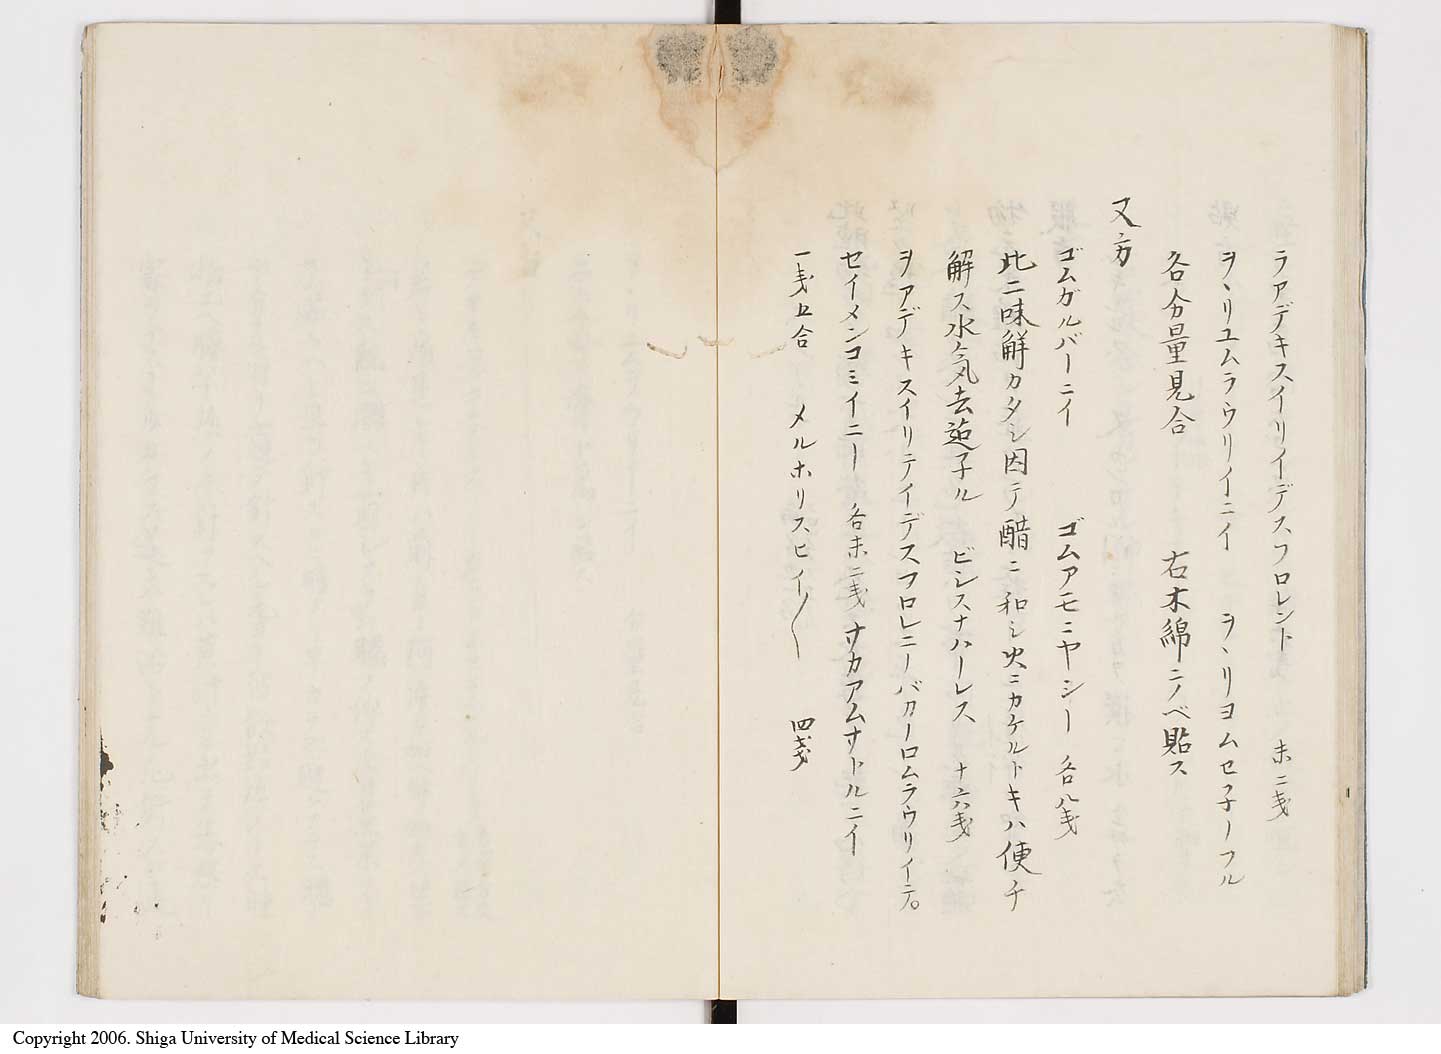 ラアデキスイリイデスフロレント 末二戔
ヲヽリユムラウリイニイ ヲヽリヨムセフ子ーフル
各分量見合 右木綿ニノベ貼ス
又方
ゴムガルバーニイ ゴムアモニヤシー 各八戔
此二味解カタシ因テ醋ニ和シ火ニカケルトキハ便チ
解ス水気去 子ル ビシスナハーレス 十六戔
ヲアデキスイリテイデスフロレニーバカーロムラウリイテ。
セイメンコミイニー 各末二戔 サカアムサトルニイ
一戔五合 メルホリスヒイ〳〵 四戔
Copyright 2006. Shiga University of Medical Science Library